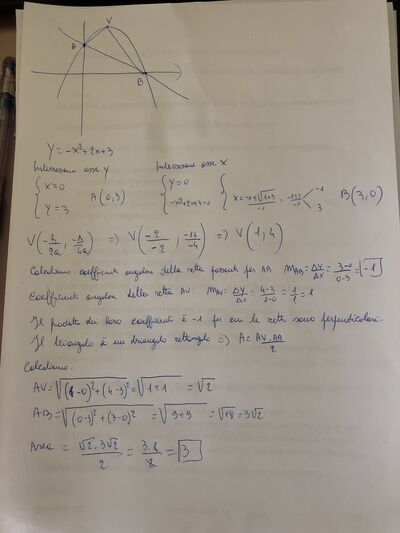 V
A
B
Y = -x²+2x+3
Intersezione asse Y
Intersezione asse X
{ X=0
{ Y=3
A(0;3)
{ Y=0
{ -x²+2x+3=0
{ X = -1±√1+3 / -1 = -1±2 / -1 < -1
3
B(3,0)
V(-b/2a ; -Δ/4a) => V(-2/-2 ; -16/-4) => V(1;4)
Calcoliamo coefficienti angolari della retta passante per AB m_AB = Δy/Δx = 3-0/0-3 = -1
Coefficienti angolare della retta AV: m_AV = Δy/Δx = 4-3/1-0 = 1/1 = 1
Il prodotto dei loro coefficienti è -1 per cui le rette sono perpendicolari.
Il triangolo è un triangolo rettangolo => A = AV·AB/2
Calcoliamo:
AV = √(1-0)²+(4-3)² = √1+1 = √2
AB = √(0-3)²+(3-0)² = √9+9 = √18 = 3√2
Area = √2·3√2/2 = 3·2/2 = 3